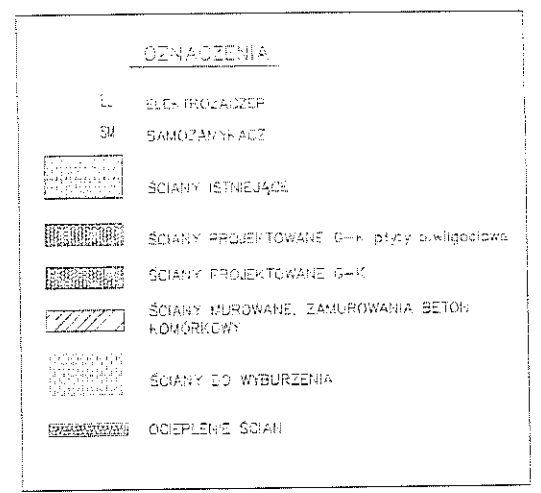 OZNACZENIA
ELEKTROZACZEP
SM SAMOZAMYKACZ
ŚCIANY ISTNIEJĄCE
ŚCIANY PROJEKTOWANE G-K płyty p.wilgociowe
ŚCIANY PROJEKTOWANE G-K
ŚCIANY MUROWANE, ZAMUROWANIA BETON
KOMÓRKOWY
ŚCIANY DO WYBURZENIA
OCIEPLENIE ŚCIAN